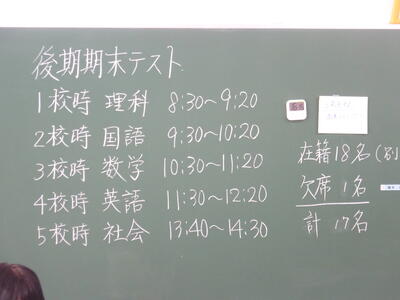 後期期末テスト
1校時 理科 8:30～9:20
2校時 国語 9:30～10:20
3校時 数学 10:30～11:20
4校時 英語 11:30～12:20
5校時 社会 13:40～14:30
在籍18名
欠席 1名
計 17名